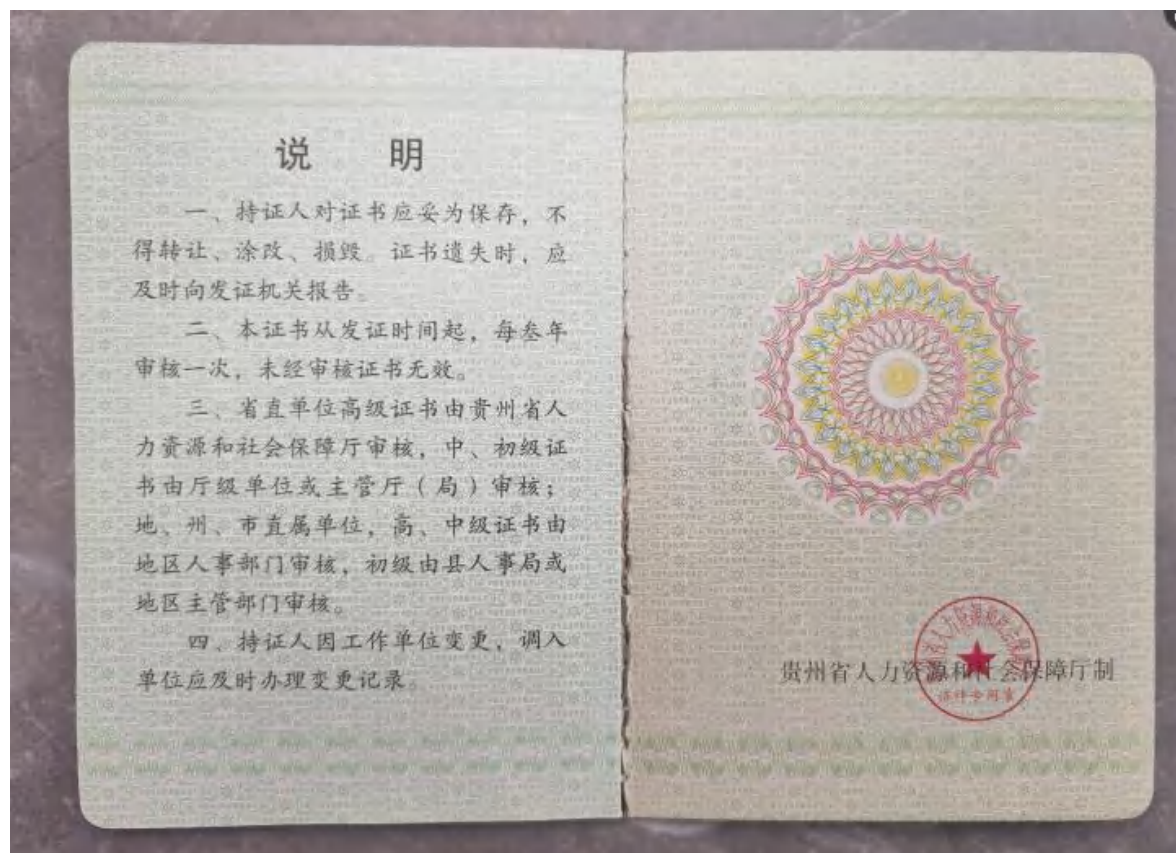 说 明
一、持证人对证书应妥为保存，不
得转让、涂改、损毁。证书遗失时，应
及时向发证机关报告。
二、本证书从发证时间起，每叁年
审核一次，未经审核证书无效。
三、省直单位高级证书由贵州省人
力资源和社会保障厅审核，中、初级证
书由厅级单位或主管厅（局）审核；
地、州、市直属单位，高、中级证书由
地区人事部门审核，初级由县人事局或
地区主管部门审核。
四、持证人因工作单位变更，调入
单位应及时办理变更记录。
贵州省人力资源和社会保障厅制